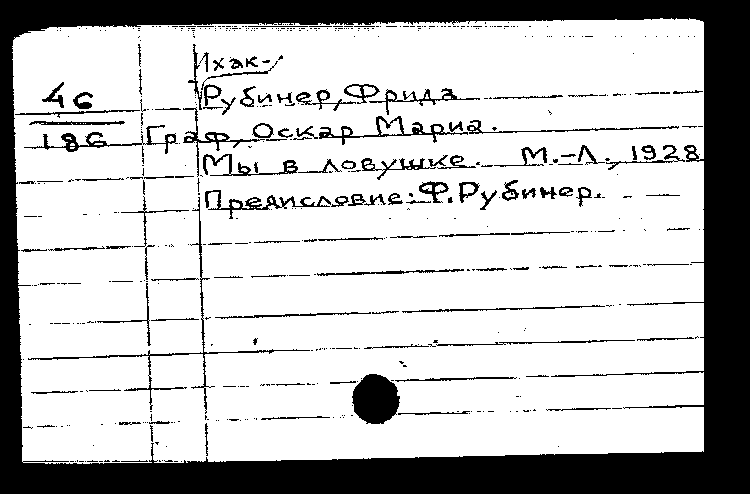 Ихак-
46 Рубинер, Фрида
186 Граф, Оскар Мариа.
Мы в ловушке. М.-Л., 1928
Предисловие: Ф. Рубинер.